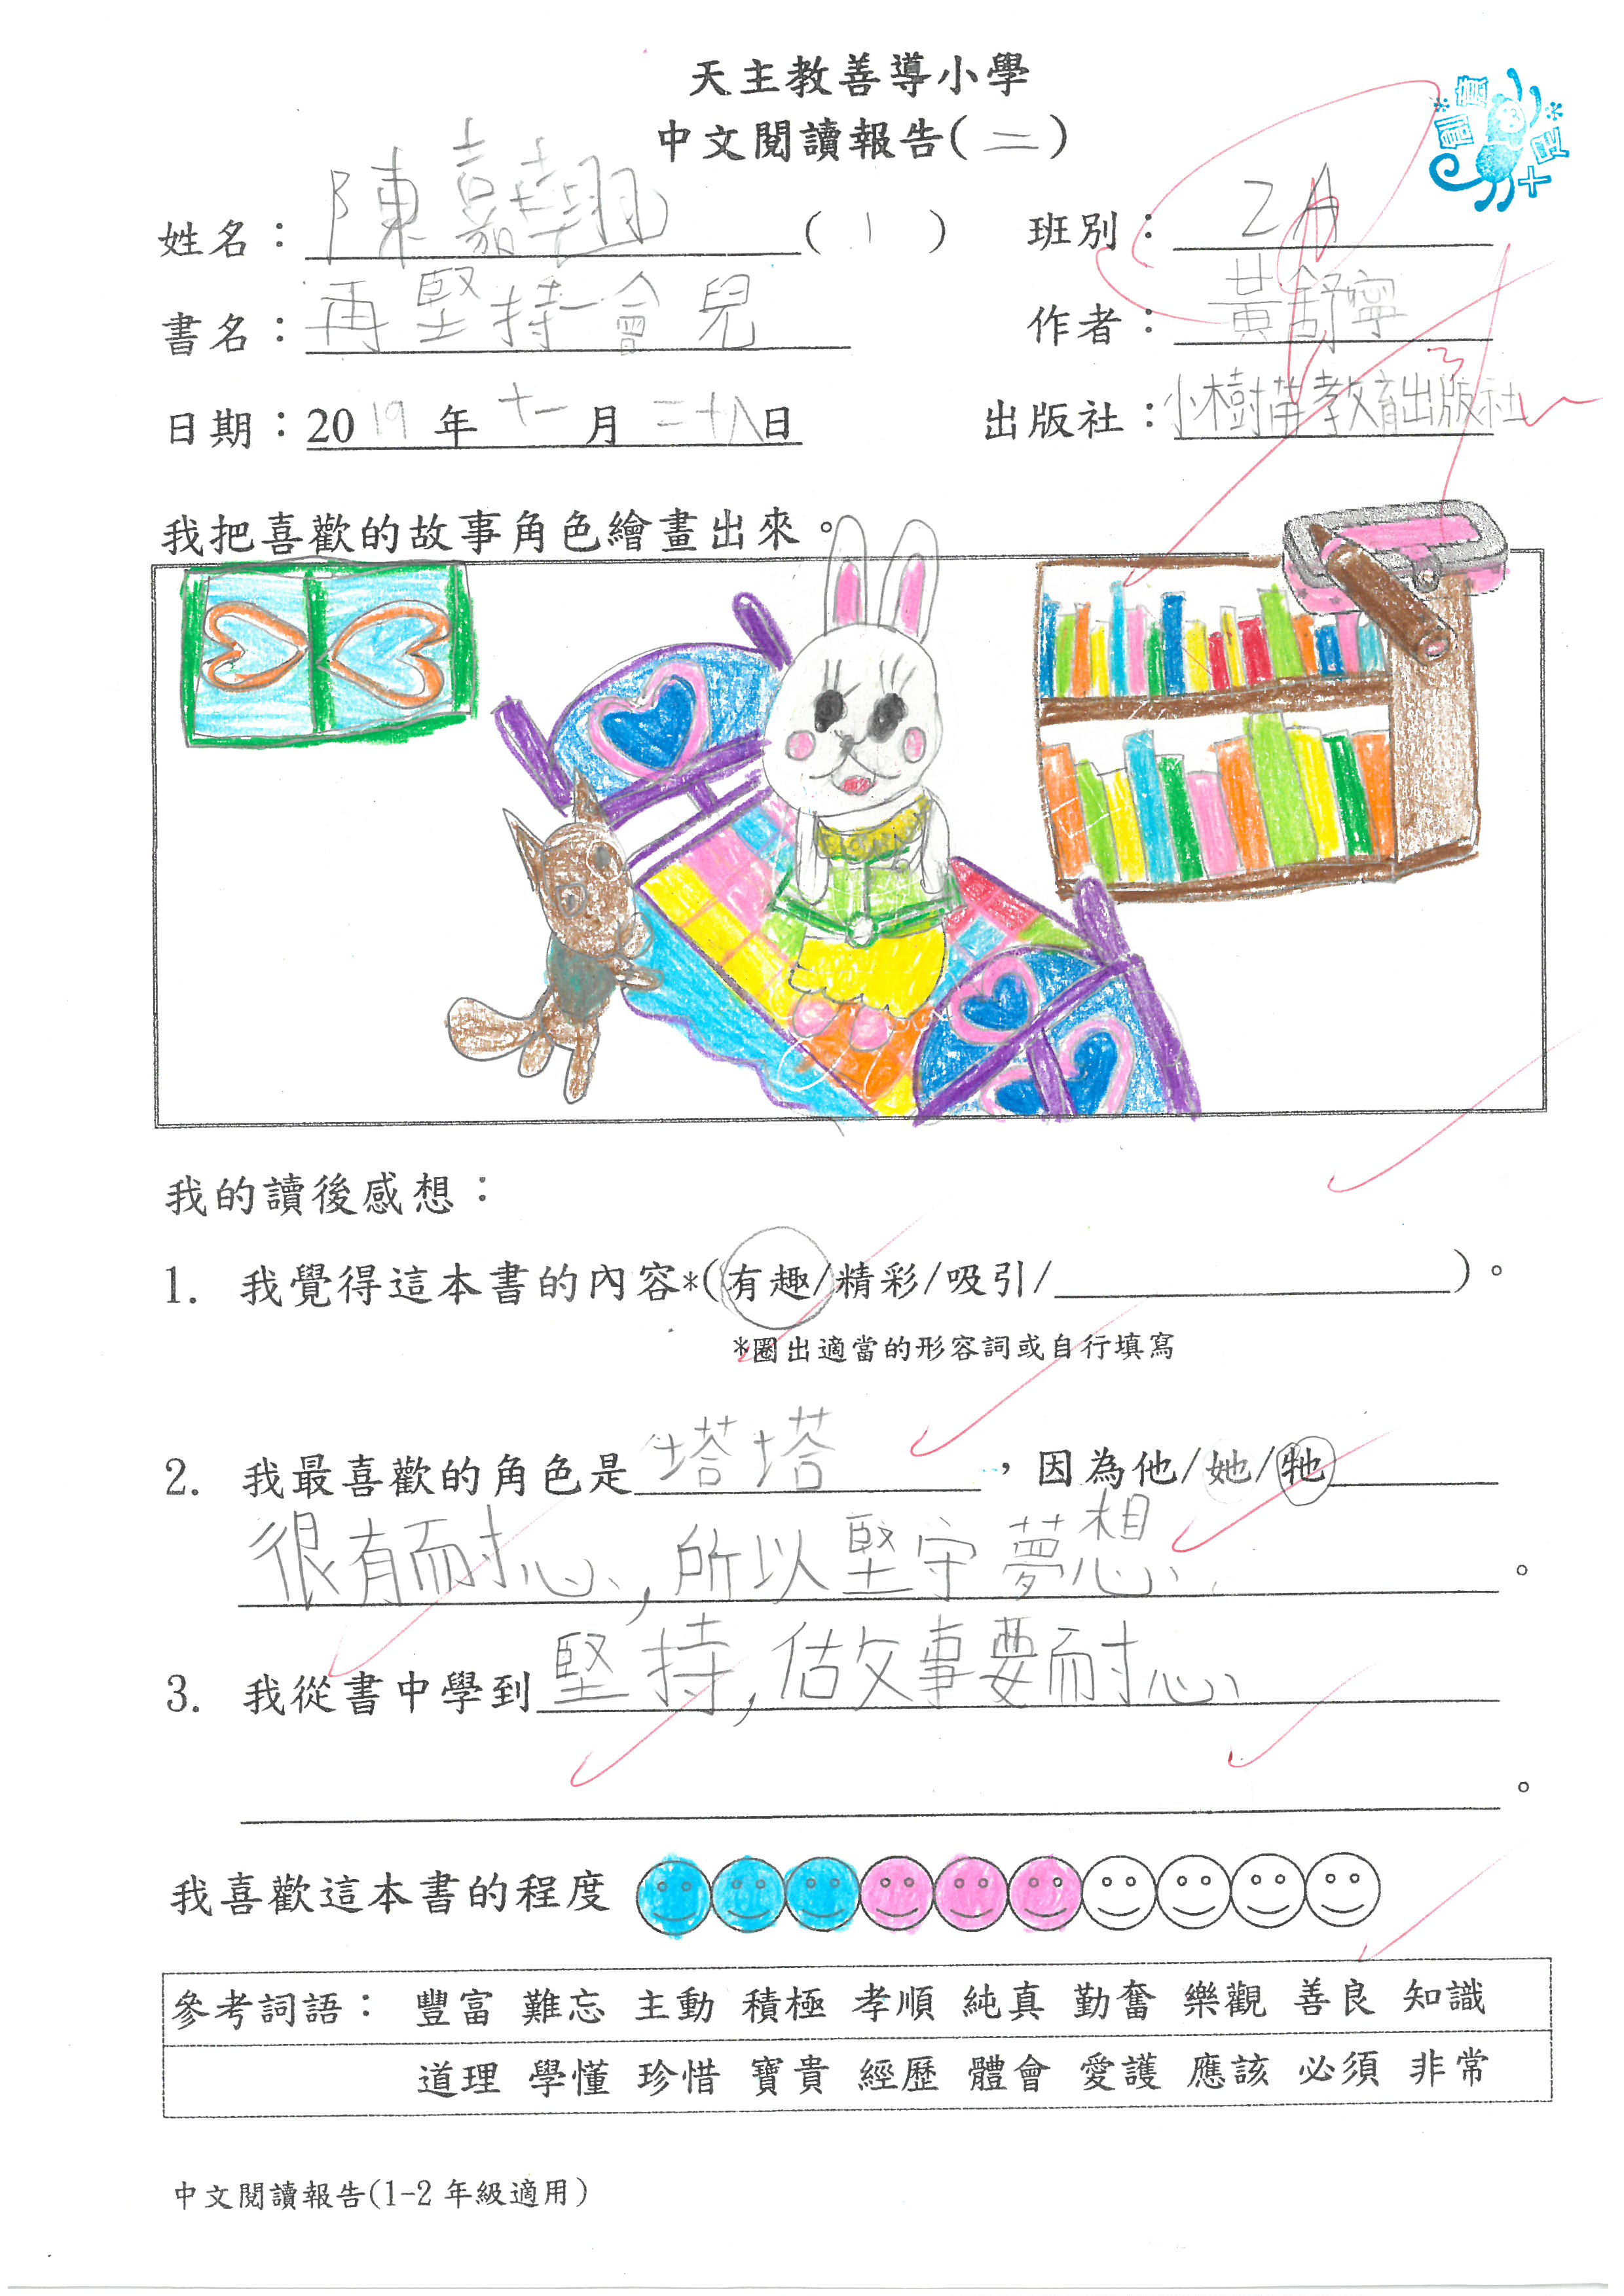 天主教善導小學
中文閱讀報告(二)
姓名：陳嘉翹(1) 班別：2A
書名：再堅持一會兒 作者：黃舒寧
日期：2019年十一月二十八日 出版社：小樹苗教育出版社
我把喜歡的故事角色繪畫出來。
我的讀後感想：
1. 我覺得這本書的內容*(有趣/精彩/吸引/)。
*圈出適當的形容詞或自行填寫
2. 我最喜歡的角色是塔塔，因為他/她/牠
很有耐心,所以堅守夢想。
3. 我從書中學到堅持,做事要耐心
。
我喜歡這本書的程度
參考詞語： 豐富 難忘 主動 積極 孝順 純真 勤奮 樂觀 善良 知識
道理 學懂 珍惜 寶貴 經歷 體會 愛護 應該 必須 非常
中文閱讀報告(1-2年級適用)